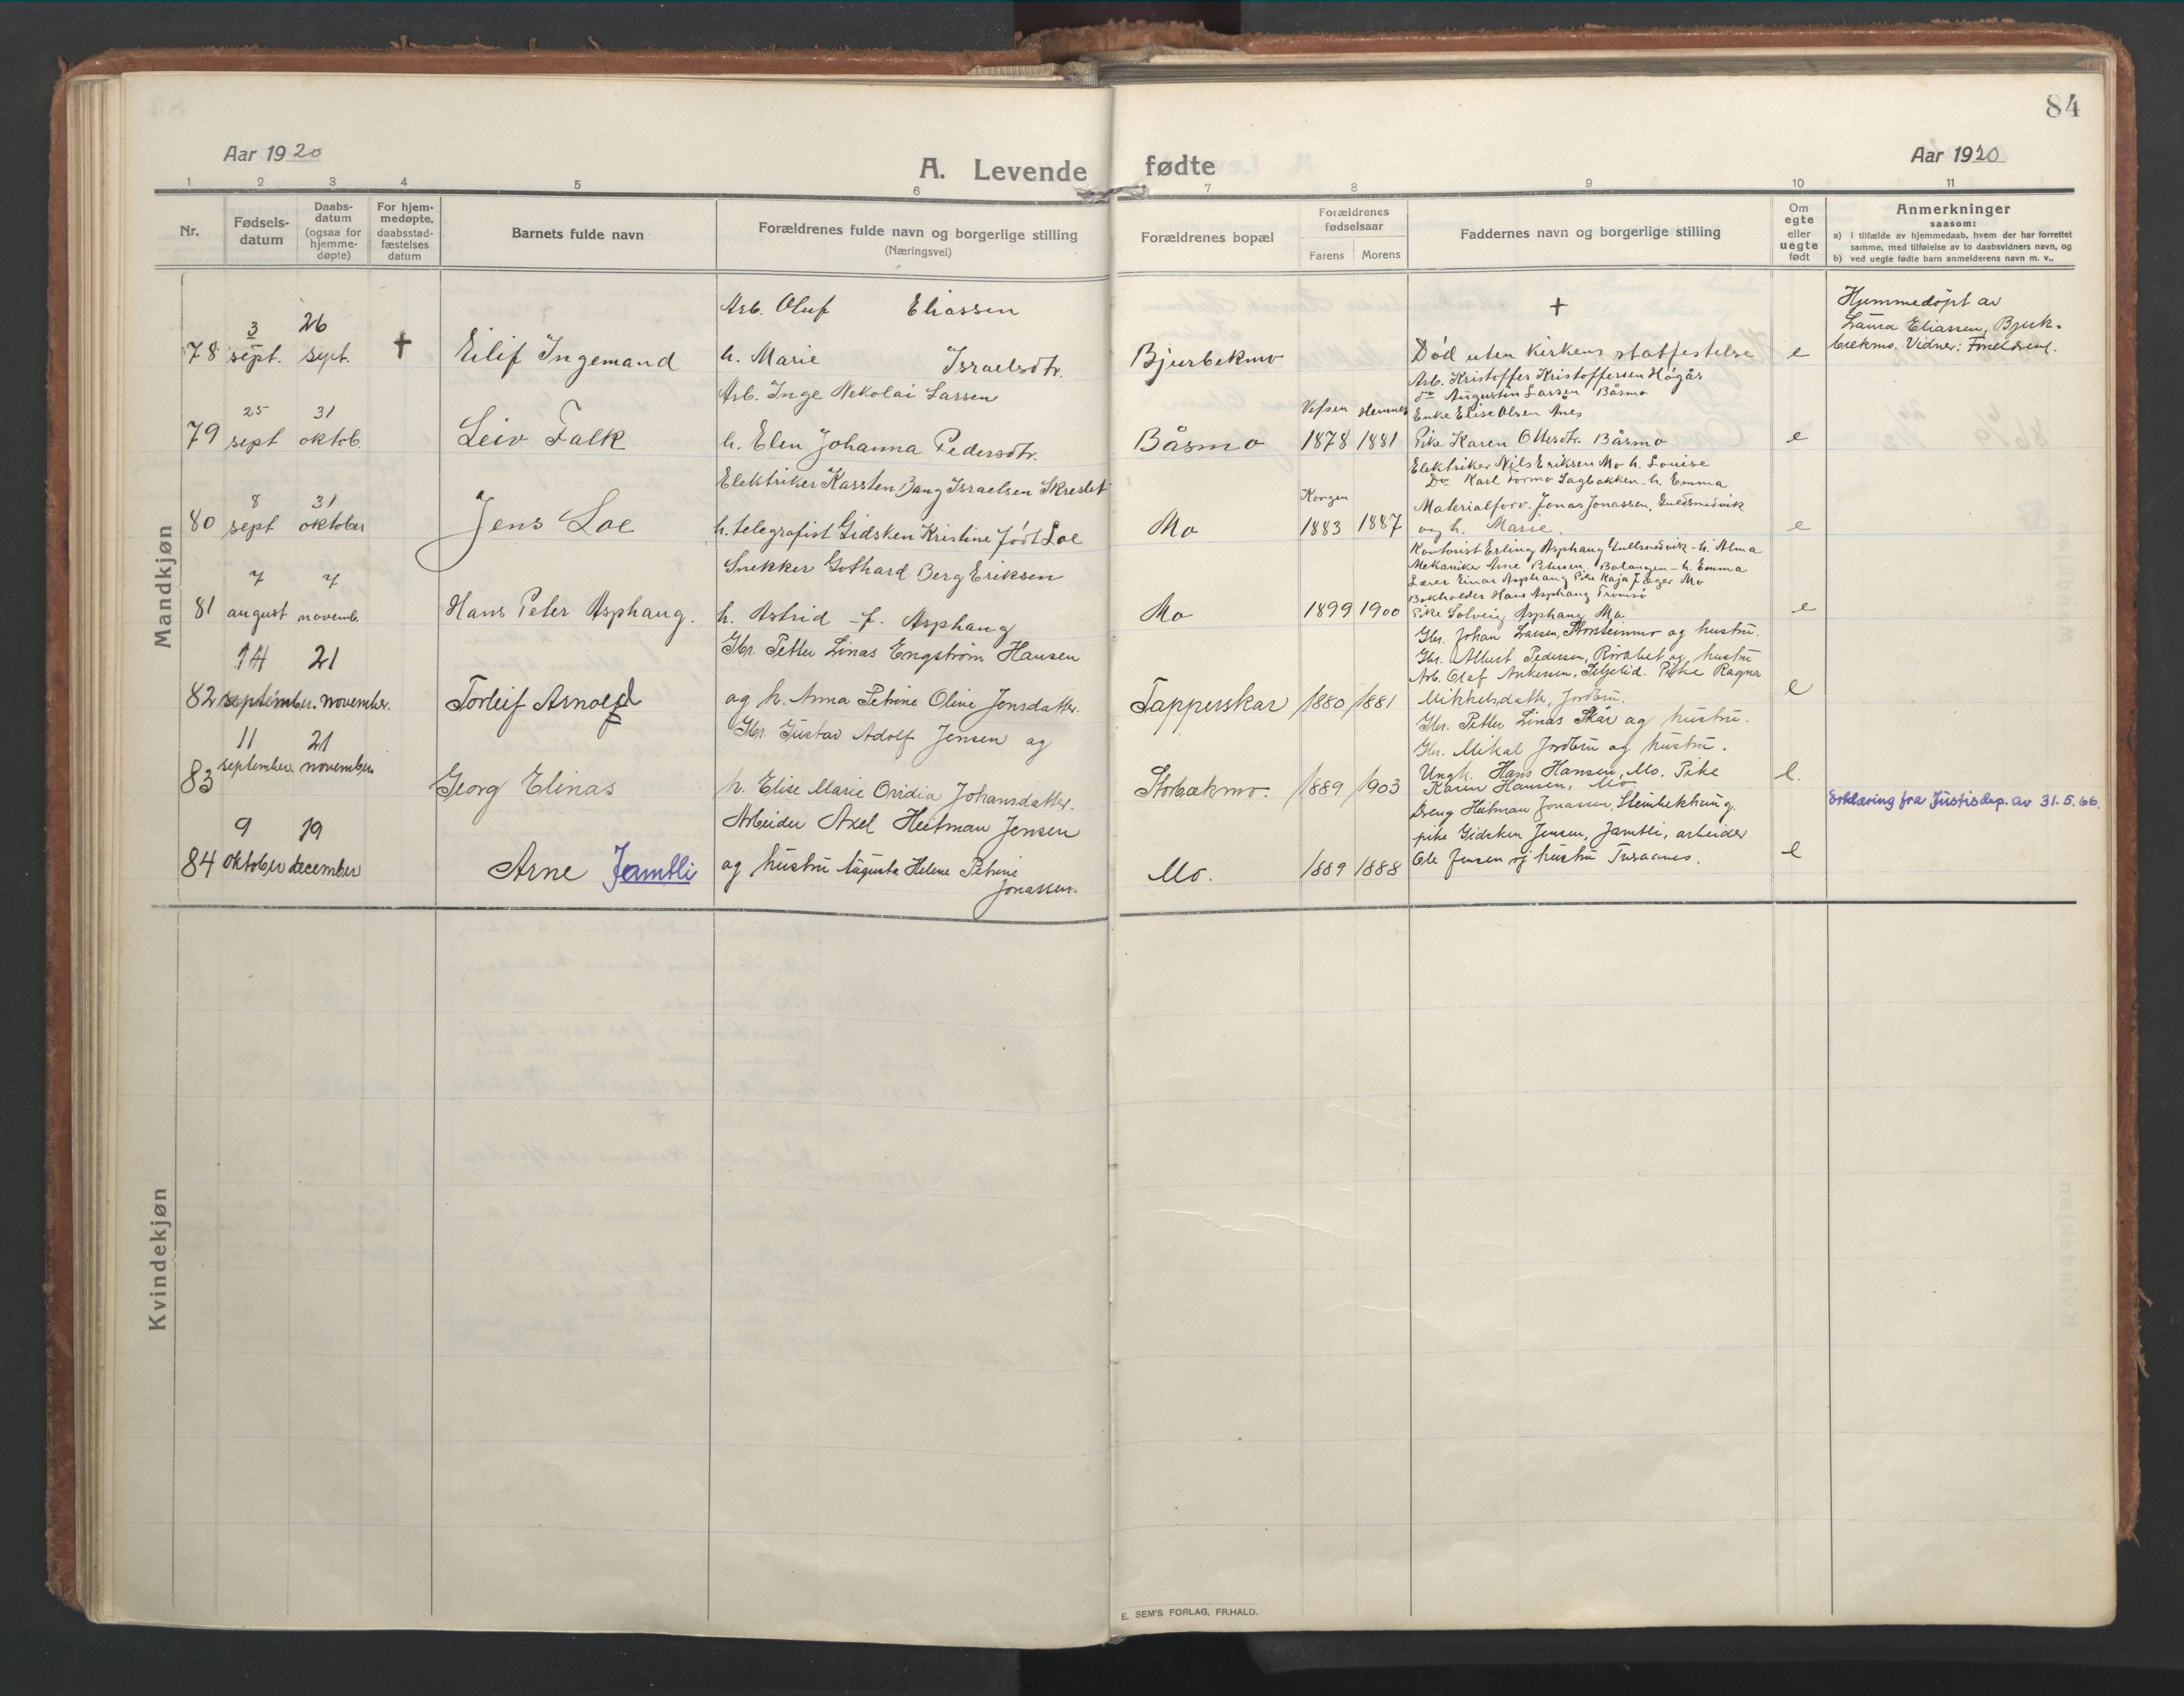 84
Aar 1920
A. Levende fødte
Aar 1920
1 2 3 4 5 6 7 8 9 10 11
Nr.
Fødsels-
datum
Daabs-
datum
(ogsaa for
hjemme-
døpte)
For hjem-
medøpte,
daabsstad-
fæstelses
datum
Barnets fulde navn
Forældrenes fulde navn og borgerlige stilling
(Næringsvei)
Forældrenes bopæl
Forældrenes
fødselsaar
Farens Morens
Faddernes navn og borgerlige stilling
Om
egte
eller
uegte
født
Anmerkninger
saasom:
a) i tilfælde av hjemmedaab, hvem der har forrettet
samme, med tilføielse av to daabsvidners navn, og
b) ved uegte fødte barn anmelderens navn m. v..
Mandkjøn
78
3
sept.
26
sept.
†
Eilif Ingemand
Arb. Oluf Eliassen
h. Marie Israelsdtr.
Bjurbekmo
†
Död uten kirkens statfestelse
e
Hjemmedöpt av
Laura Eliassen, Bjerk-
bækmo. Vidner: Foreldrene.
79
25
sept
31
oktob.
Leiv Falk
Arb. Inge Nekolai Larsen
h. Elen Johanna Pedersdtr.
Båsmo
Vefsen Hemnes
1878 1881
Arb. Kristoffer Kristoffersen Högås
do Augustin Larsen Båsmo
Enke Elise Olsen Anes
Pike Karen Ollesdtr. Båsmo
e
80
8
sept
31
oktober
Jens Loe
Elektriker Karsten Bang Israelsen Skreslet
h. telegrafist Gidsken Kristine födt Loe
Mo
Korgen
1883 1887
Elektriker Nils Eriksen Mo h. Louise
Do Karl Formo Sagbakken h. Emma
Materialforv. Jonas Jonassen, Guldsmedvik
og h. Marie.
e
81
7
august
7
novemb.
Hans Peter Asphaug.
Snekker Gothard Berg Eriksen
h. Astrid f. Asphaug
Mo
1899 1900
Kontorist Erling Asphaug Gullsmedvik - h. Alma
Mekaniker Arne Petersen, Balangen - h. Emma
Lærer Einar Asphaug Pike Kaja Jæger Mo
Bokholder Hans Asphaug Tromsö
Pike Solveig Asphaug Mo.
e
82
14
september.
21
november.
Torleif Arnold
Gbr. Petter Linas Engström Hansen
og h. Anna Petrine Oline Jensdatter.
Tapperskar
1880 1881
Gbr. Johan Larsen, Storsteinmo og hustru.
Gbr. Albert Pedersen, og hustru
Arb. Olaf Ankersen, Seljelid. Pike Ragna
Mikkelsdatter, Jordbru.
e
83
11
september.
21
november
Georg Elinas
Gbr. Gustav Adolf Jensen og
h. Elise Marie Ovidia Johansdatter.
Storbækmo.
1889 1903
Gbr. Petter Linas Skår og hustru.
Gbr. Mikal Jordbru og hustru.
Ungk. Hans Hansen, Mo. Pike
Karen Hansen, Mo.
e.
84
9
oktober
19
december
Arne Jamtli
Arbeider Axel Heitman Jensen
og hustru Augusta Helene Petrine
Jonassen.
Mo.
1889 1888
Dreng Heitman Jonassen, Steinbekhaug.
pike Gidsken Jensen, Jamtli, arbeider
Ole Jensen og hustru
e
Erklæring fra Justisdep. av 31.5.66.
Kvindekjøn
E. SEM'S FORLAG, FR.HALD.